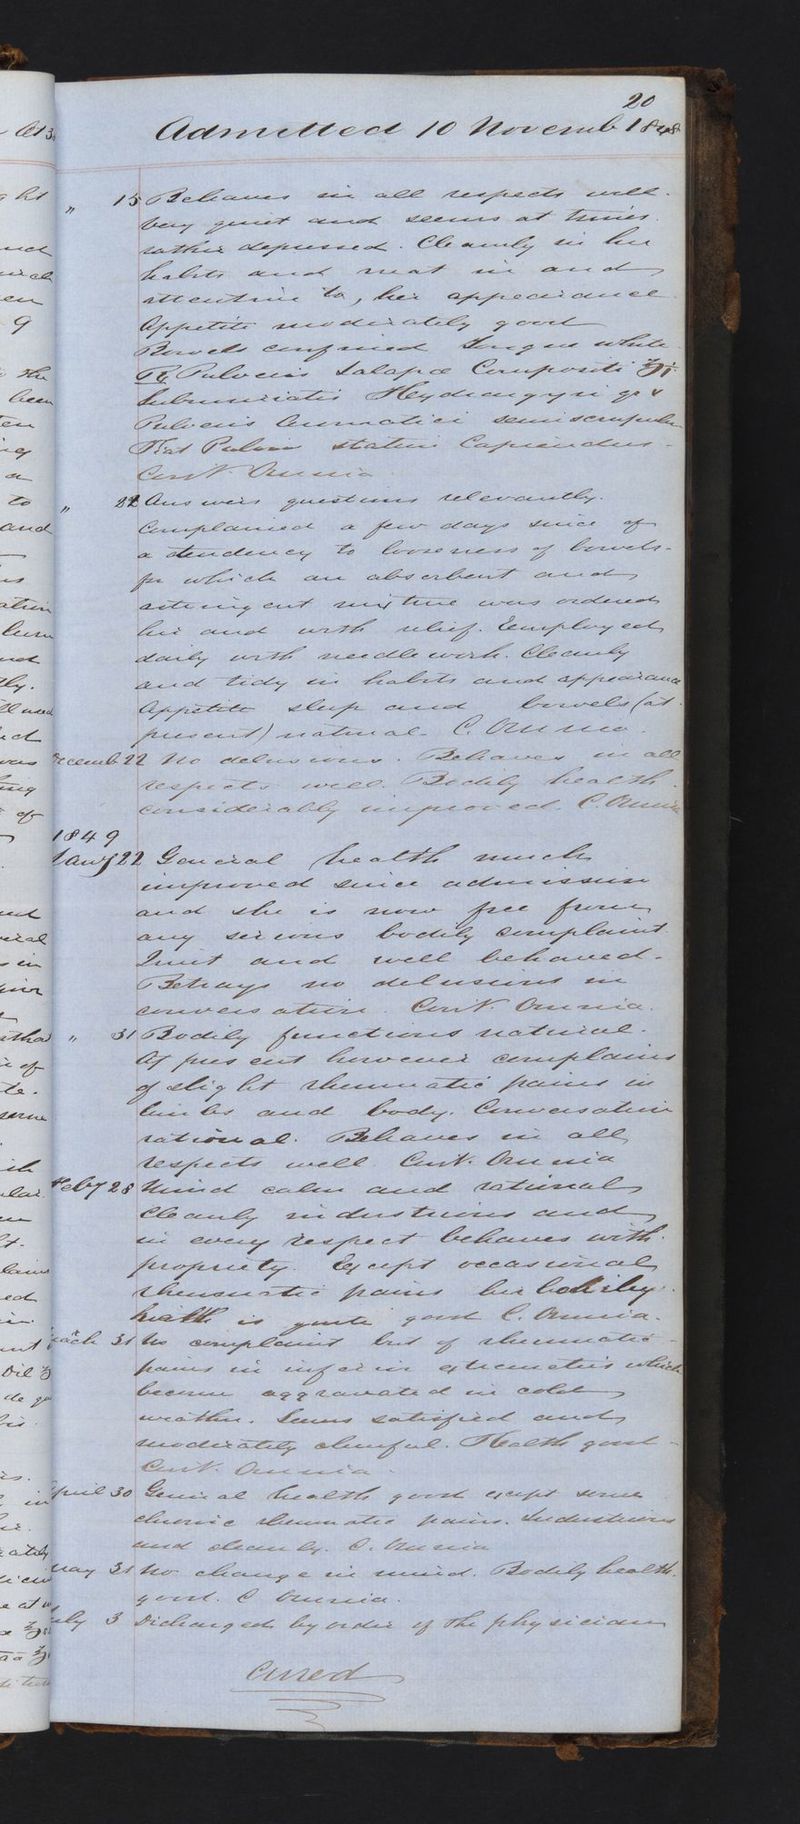 20
Admitted 10 Novemb 1848
" 15 Behaves in all respects well.
Very quiet and seems at times
rather depressed. Cleanly in her
habits and neat in and
attentive to, her appearance
Appetite moderately good
Bowels confined Tongue white
Rx Pulveris Jalapæ Compositi ʒj
Submuriatis Hydrargyri gr v
Pulveris Aromatici semiscrupulum
Fiat Pulvis statim Capiendus.
Cont. Omnia
" 22 Answers questions relevantly.
Complained a few days since of
a tendency to looseness of bowels.
for which an absorbent and
astringent mixture was ordered
her and with relief. Employed
daily with needlework. Cleanly
and tidy in habits and appearance
Appetite sleep and bowels (at
present) natural. C. Omnia
Decemb 22 No delusions. Behaves in all
respects well. Bodily health
considerably improved. C. Omnia
1849
Jany 22 General health much
improved since admission
and she is now free from
any serious bodily complaint
Quiet and well behaved.
Betrays no delusions in
conversation. Cont. Omnia.
" 31 Bodily functions natural.
At present however complains
of slight rheumatic pains in
limbs and body. Conversation
rational. Behaves in all
respects well Cont. Omnia
Feby 28 Mind calm and rational
Cleanly industrious and
in every respect behaves with
propriety. Except occasional
rheumatic pains her bodily
health is quite good C. Omnia.
March 31 No complaint but of rheumatic
pains in inferior extremities which
become aggravated in cold
weather. Seems satisfied and
moderately cheerful. Health good
Cont. Omnia.
April 30 General health good except some
chronic rheumatic pains. Industrious
and cleanly. C. Omnia
May 31 No change in mind. Bodily health
good. C Omnia.
July 3 Discharged by order of the physician
Cured